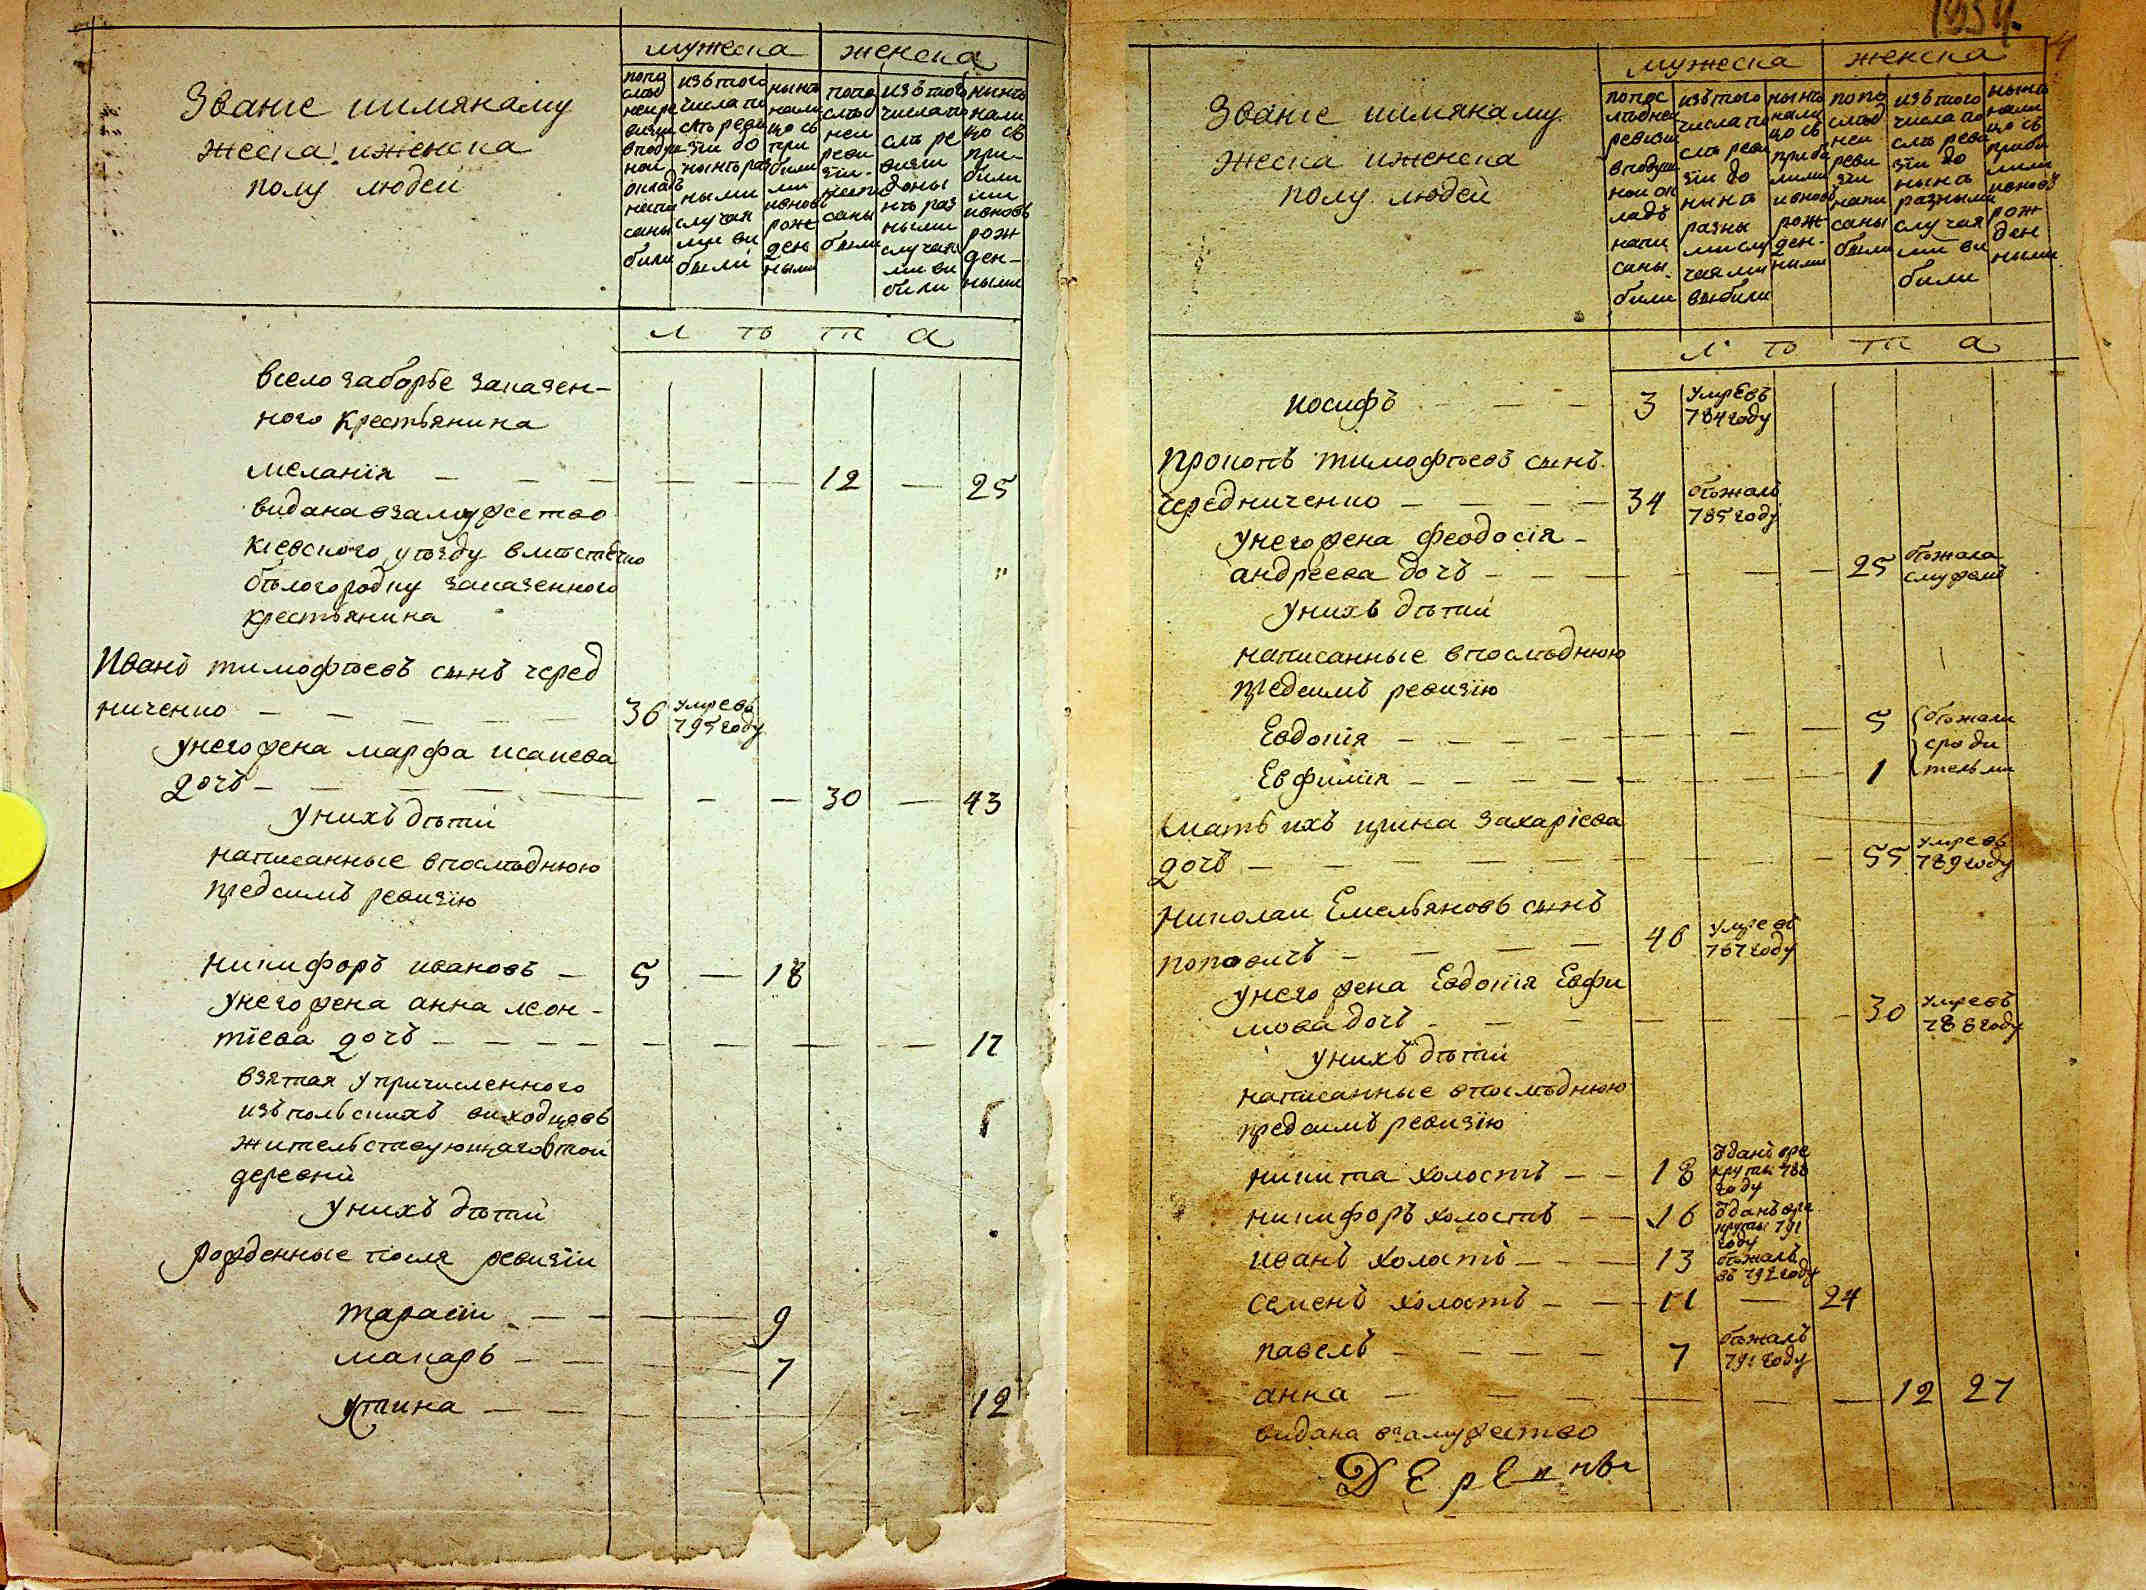 мужеска женска
Званіе иимянаму
жеска иженска
полу людей
попо
слѣд
ней ре
визіи
вподуш
ной
окладѣ
напи
саны
били
изътого
числа по
слѣ реви
зіи до
нынѣ раз
ными
случая
ми ви
были
нынѣ
нали
цо съ
при
были
ми
ивновь
рож
ден
ными
попо
слѣд
ней
реви
зіи
напи
саны
были
изътого
числа по
слѣ ре
визіи
доны
нѣ раз
ными
случая
ми ви
били
нынѣ
нали
цо съ
при-
были
ми
ивновь
рож
ден-
ными
л ѣ т а
вcело заборье заказен-
ного крестьянина
меланія 12 25
видана взамужество
кіевского уѣзду вмѣстечко
бѣлогородку заказенного
крестьянина
Иванъ тимофѣевъ сынъ черед
ниченко 36 умре въ
795 году
унего жена марфа исакиева
дочъ 30 43
унихъ дѣтей
написанные впослѣднюю
предсимъ ревизію
никифоръ ивановъ 5 18
унего жена анна леон-
тіева дочъ 17
взятая упричисленного
изъ польскихъ виходцовъ
жительствующаго втой
деревнѣ
унихъ дѣтей
рожденные после ревизіи
тарасій 9
макаръ 7
устина 12
1834.
4
мужеска женска
Званіе иимянаму
жеска иженска
полу людей
попос
лѣдней
ревизіи
вподуш
ной ок
ладѣ
напи
саны
били
изътого
числа по
слѣ реви
зіи до
нынѣ
разны
ми слу
чаями
выбили
нынѣ
нали
цо съ
прибы
лими
ивновь
рож
ден-
ными
попо
слѣд
ней
реви
зіи
напи
саны
были
изътого
числа по
слѣ реви
зіи до
нынѣ
разными
случая
ми ви
били
нынѣ
нали
цо съ
прибы
лими
ивновь
рож
ден
ными
л ѣ т а
иосифъ 3 умре въ
784 году
прокопъ тимофѣевъ сынъ
чередниченко 34 бѣжалъ
785 году
унего жена феодосія
андреева дочъ 25 бѣжала
смужемъ
унихъ дѣтей
написанные впослѣднюю
предсимъ ревизію
Евдокія 5 бѣжали
сроди
Евфимія 1 тельми
мать ихъ ирина захаріева
дочъ 55 умре въ
789 году
николай Емельяновъ сынъ
поповичъ 46 умре въ
787 году
унего жена Евдокія Евфи
мова дочъ 30 умре въ
788 году
унихъ дѣтей
написанные впослѣднюю
предсимъ ревизію
никита холостъ 18 ѿданъ вре
круты 788
году
никифоръ холостъ 16 ѿданъ вре
круты 791
году
иванъ холостъ 13 бѣжалъ
въ 792 году
семенъ холостъ 11 24
павелъ 7 бѣжалъ
791 году
анна 12 27
видана взамужество